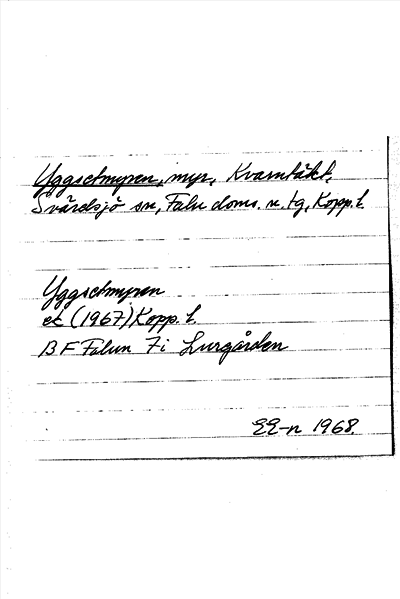 Yggsctmyren, myr, Kvarntäkt,
Svärdsjö sn, Falu doms. n. tg, Kopp. l.
Yggsctmyren
ek (1967) Kopp. l.
BF Falun 7i Lurgården
EE-n 1968.